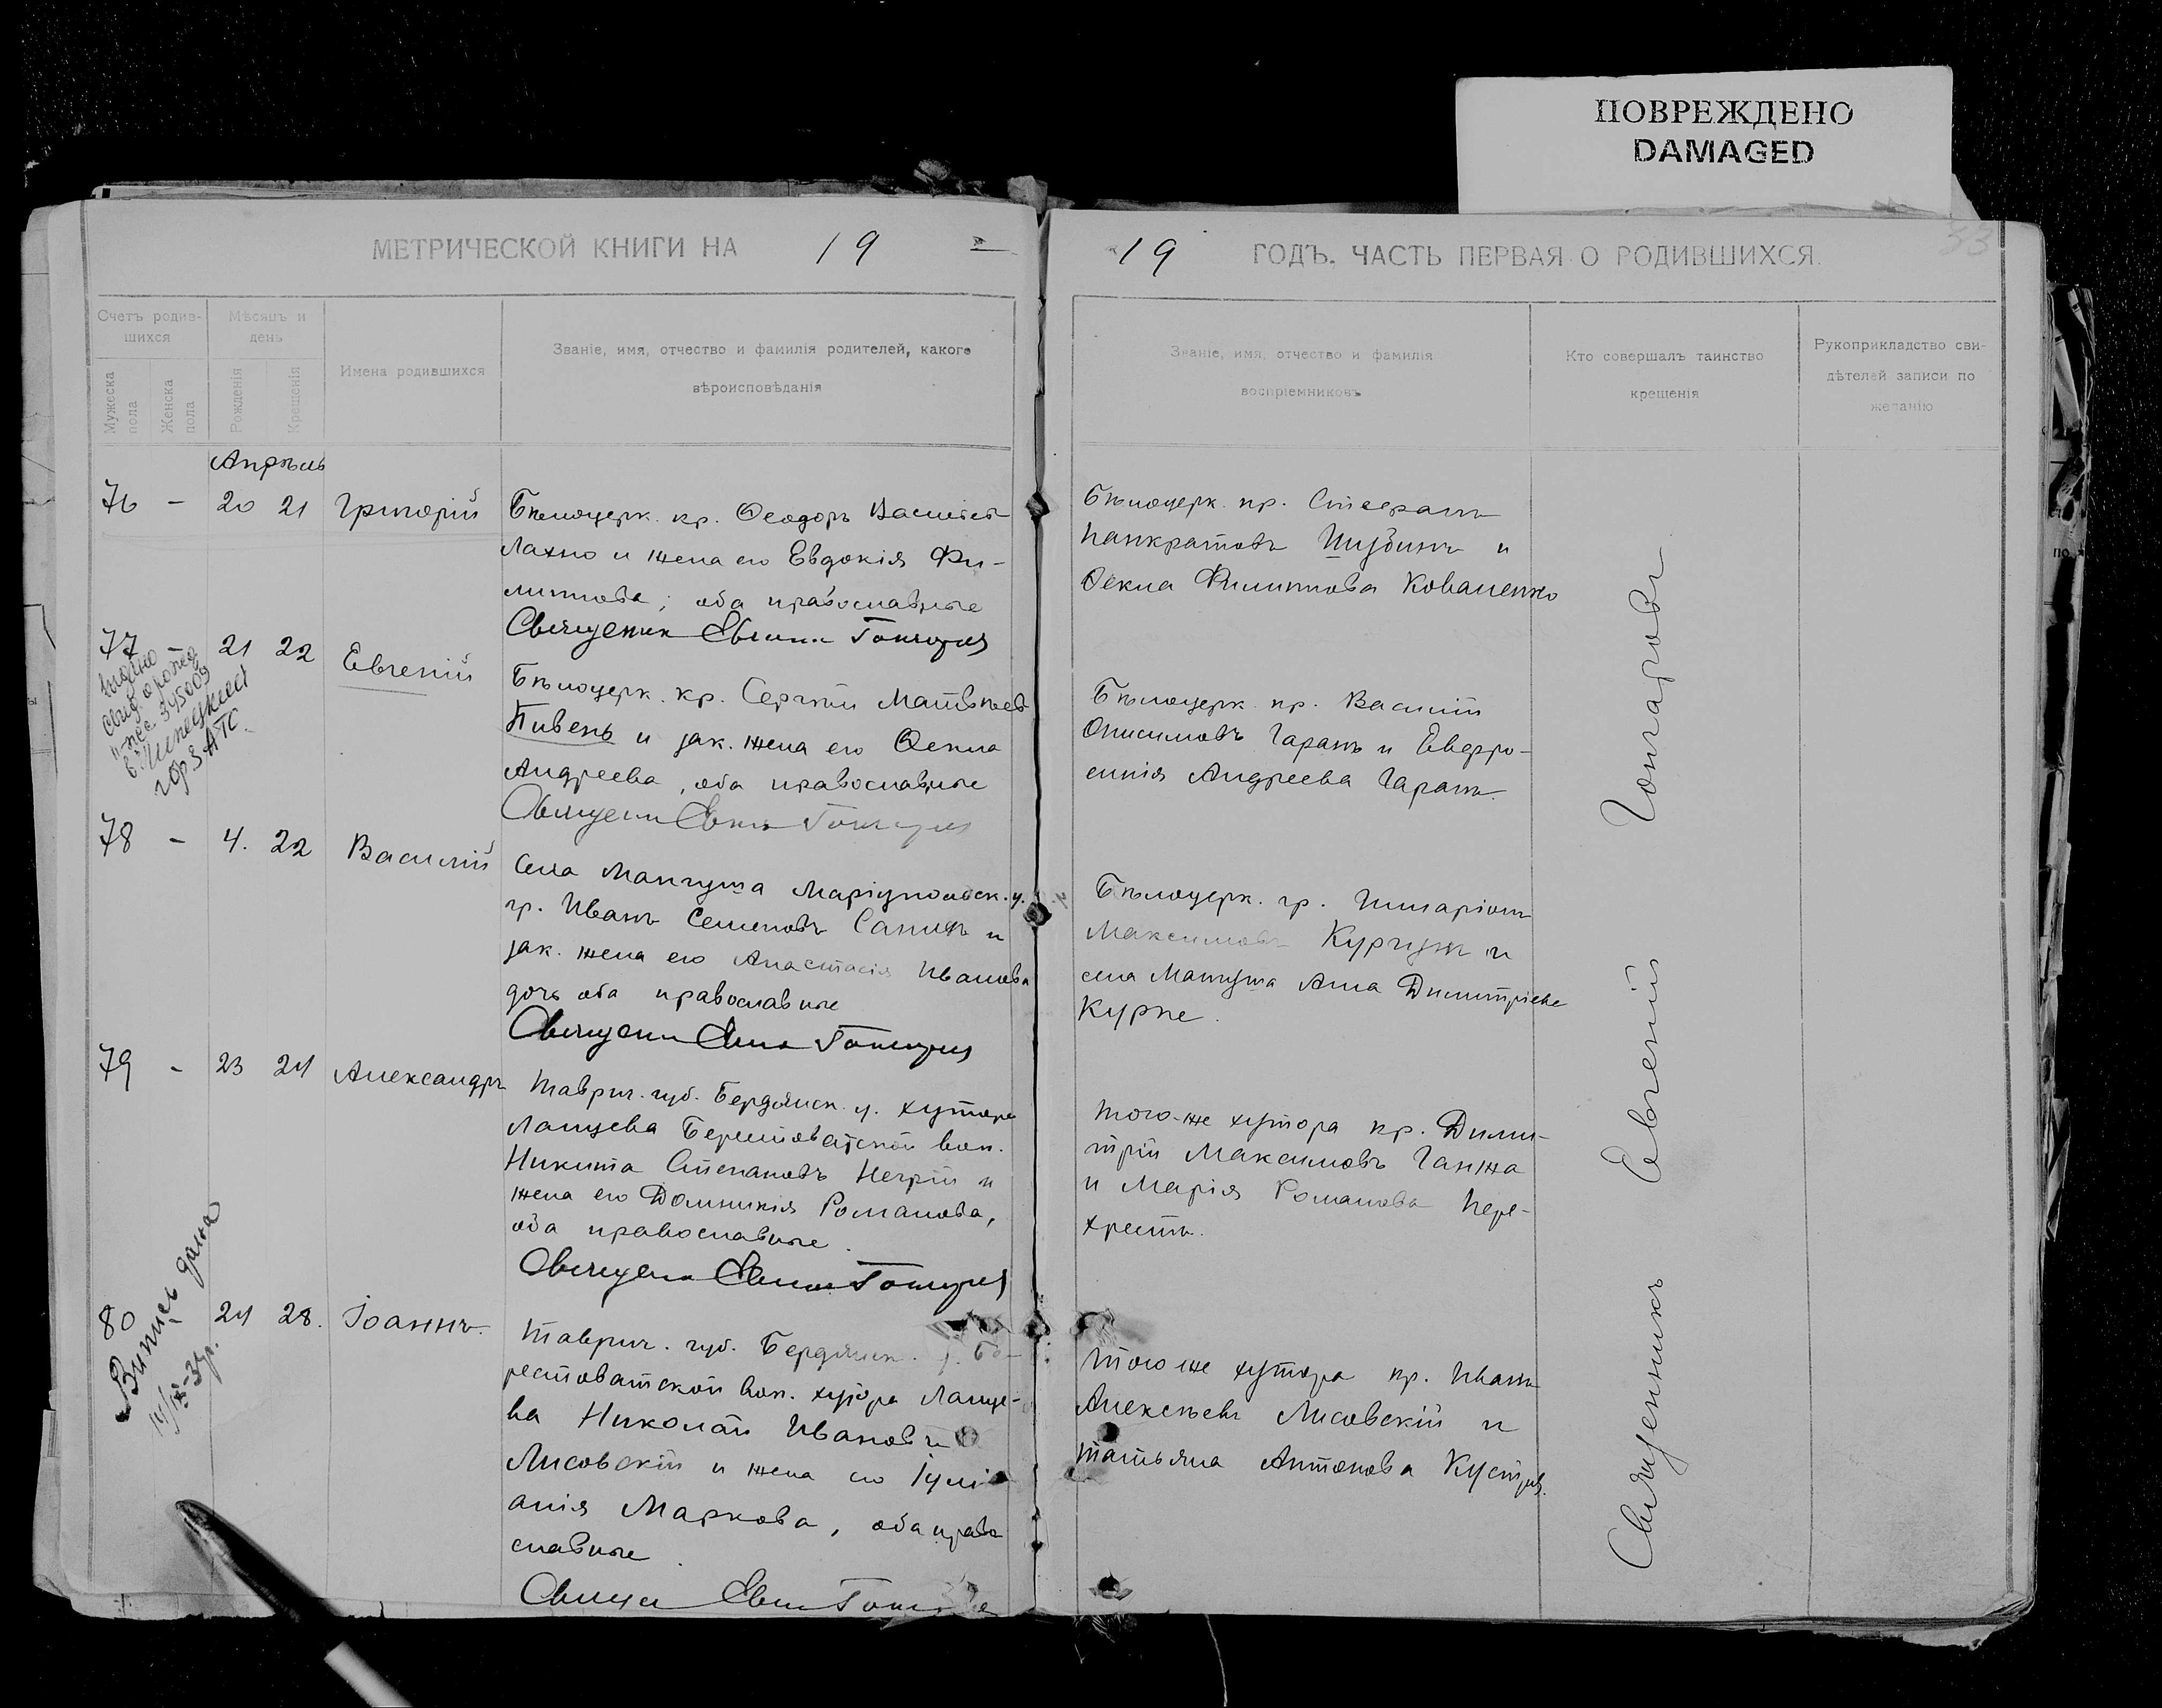 ПОВРЕЖДЕНО
DAMAGED
МЕТРИЧЕСКОЙ КНИГИ НА 19
19 ГОДЪ. ЧАСТЬ ПЕРВАЯ О РОДИВШИХСЯ.
33
Счетъ родив-
шихся
Мужеска
пола
Женска
пола
Мѣсяцъ и
день
Рожденія
Крещенія
Имена родившихся
Званіе, имя, отчество и фамилія родителей, какого
вѣроисповѣданія
Званіе, имя, отчество и фамилія
воспріемниковъ
Кто совершалъ таинство
крещенія
Рукоприкладство сви-
дѣтелей записи по
желанію
Апрѣль
76 - 20 21 Григорій
Бѣлоцерк. кр. Ѳеодоръ Васильев
Лахно и жена его Евдокія Фи-
липпова; оба православные
Священник Евгений Гончаров
Бѣлоцерк. кр. Стефанъ
Панкратовъ Шубинъ и
Ѳекла Филиппова Коваленко
77 - 21 22 Евгеній
Выдано
свид. о рожд.
345009
гор ЗАГС
Бѣлоцерк. кр. Сергій Матвѣев
Пивень и зак. жена его Ѳекла
Андреева, оба православные
Бѣлоцерк. кр. Василій
Онисимовъ Гарань и Евфро-
синія Андреева Гарань.
78 - 4. 22 Василій
Села Мангуша Маріупольск. у.
гр. Иванъ Семеновъ и
зак. жена его Анастасія Иванова
дочь оба православные
Бѣлоцерк. гр. Илларіонъ
Максимовъ Кургузъ и
села Мангуша Анна Димитріева
Курпе.
79 - 23 24 Александръ
Таврич. губ. Бердянск. у. хутора
Ланцева Берестоватской вол.
Никита Степановъ Негрій и
жена его Домникія Романова,
оба православные.
Того-же хутора кр. Дими-
трій Максимовъ Ганжа
и Марія Романова Пере-
хресть.
80 24 28. Іоаннъ.
Випись дана
Таврич. губ. Бердянск. у. Бе-
рестоватской вол. хутора Ланце-
ва Николай Ивановъ
Лисовскій и жена его Іулі
анія Маркова, оба право
славные.
Того же хутора кр. Иванъ
Алексѣевъ Лисовскій и
Татьяна Антонова
Священникъ Евгеній Гончаровъ